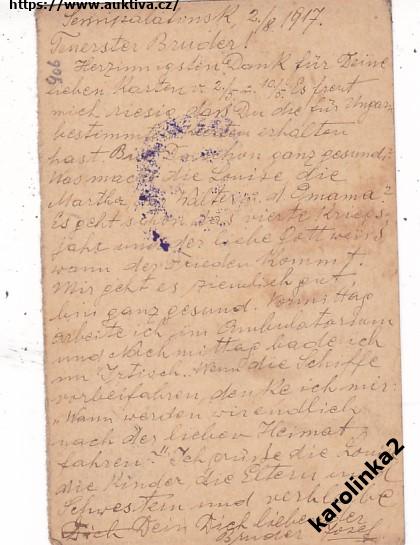 https://www.auktiva.cz/
Semipalatinsk 2./8. 1917.
Teuerster Bruder!
906
Herzinnigsten Dank für Deine
lieben Karten v. 2/5 10/5 Es freut
mich riesig daß Du die für Ungarn
bestimmte Karten erhalten
hast. Bist Du schon ganz gesund?
Was macht die Louise die
Martha der Walter u. d. Gmama?
Es geht schon das vierte Kriegs-
jahr und der liebe Gott weiss
wann der Frieden kommt.
Mir geht es ziemlich gut,
bin ganz gesund. Vormittag
arbeite ich im Ambulatorium
und Nachmittag bade ich
im Irtisch. Wenn die Schiffe
vorbeifahren, denke ich mir:
"Wann werden wir endlich
nach der lieben Heimat
fahren?" Ich grüße die
die Kinder die Eltern und
Schwestern und verbleibe
Dich Dein Dich liebender
Bruder Josef
karolinka2